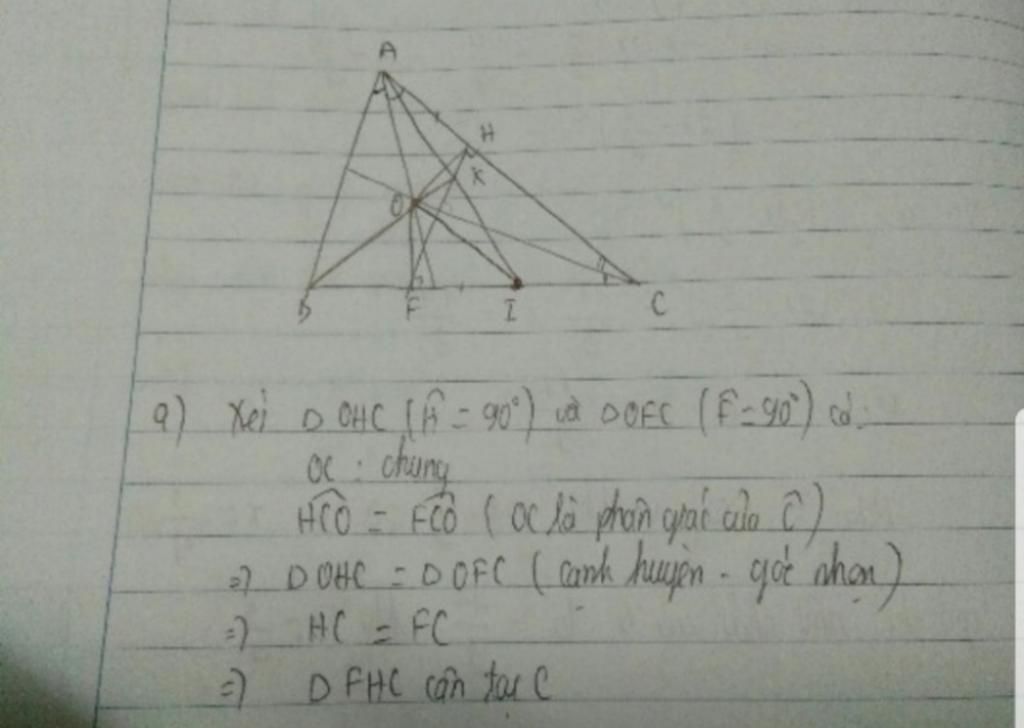 A
H
K
O
B F I C
a) Xét D OHC (Ĥ = 90°) và D OFC (F̂ = 90°) có:
OC : chung
HCO = FCO (OC là phân giác của Ĉ)
=) D OHC = D OFC (cạnh huyền - góc nhọn)
=) HC = FC
=) D FHC cân tại C